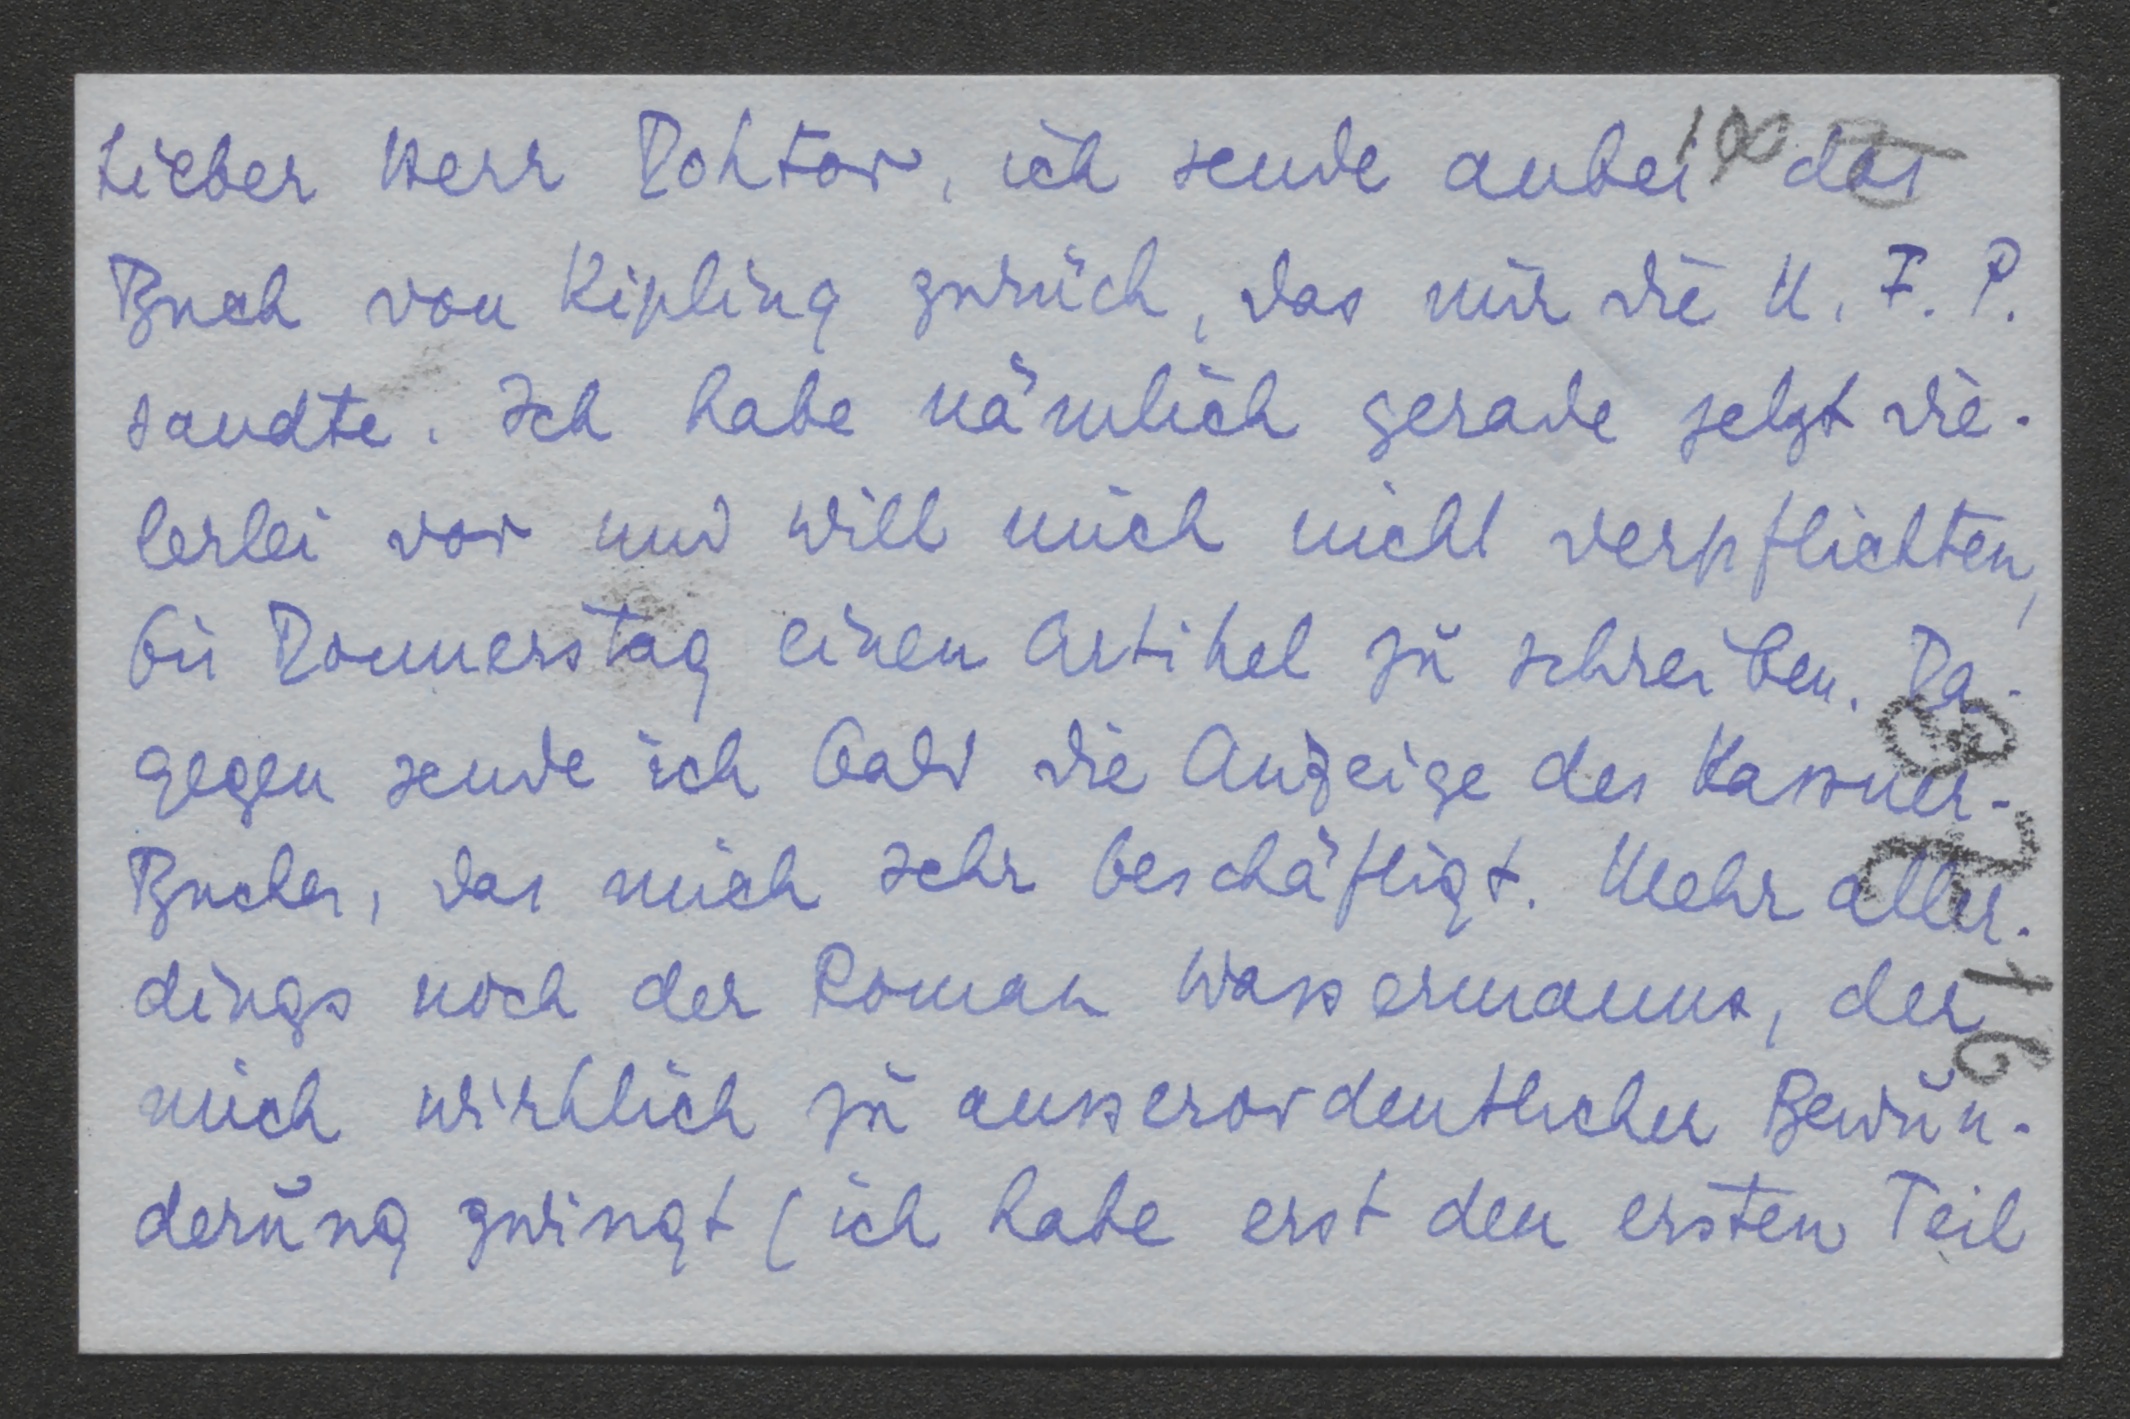 Lieber Herr Doktor, ich sende anbei das
Buch von Kipling zurück, das mir die N. F. P.
sandte. Ich habe nämlich gerade jetzt vie-
lerlei vor und will mich nicht verpflichten,
bis Donnerstag einen Artikel zu schreiben. Da-
gegen sende ich bald die Anzeige des Kassner-
Buches, das mich sehr beschäftigt. Mehr aller-
dings noch der Roman Wassermanns, der
mich wirklich zu ausserordentlicher Bewun-
derung zwingt (ich habe erst den ersten Teil